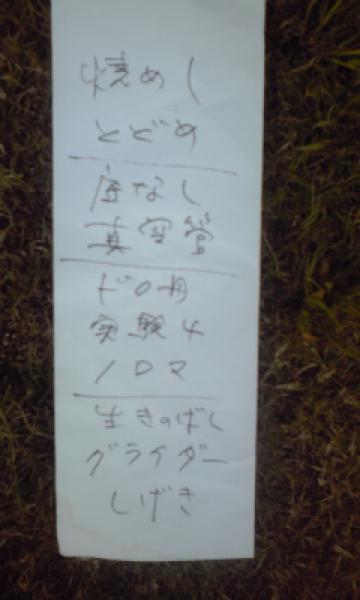 焼めし
とどめ
底なし
真空管
ドロ舟
実験4
ノロマ
生きのばし
グライダー
しげき